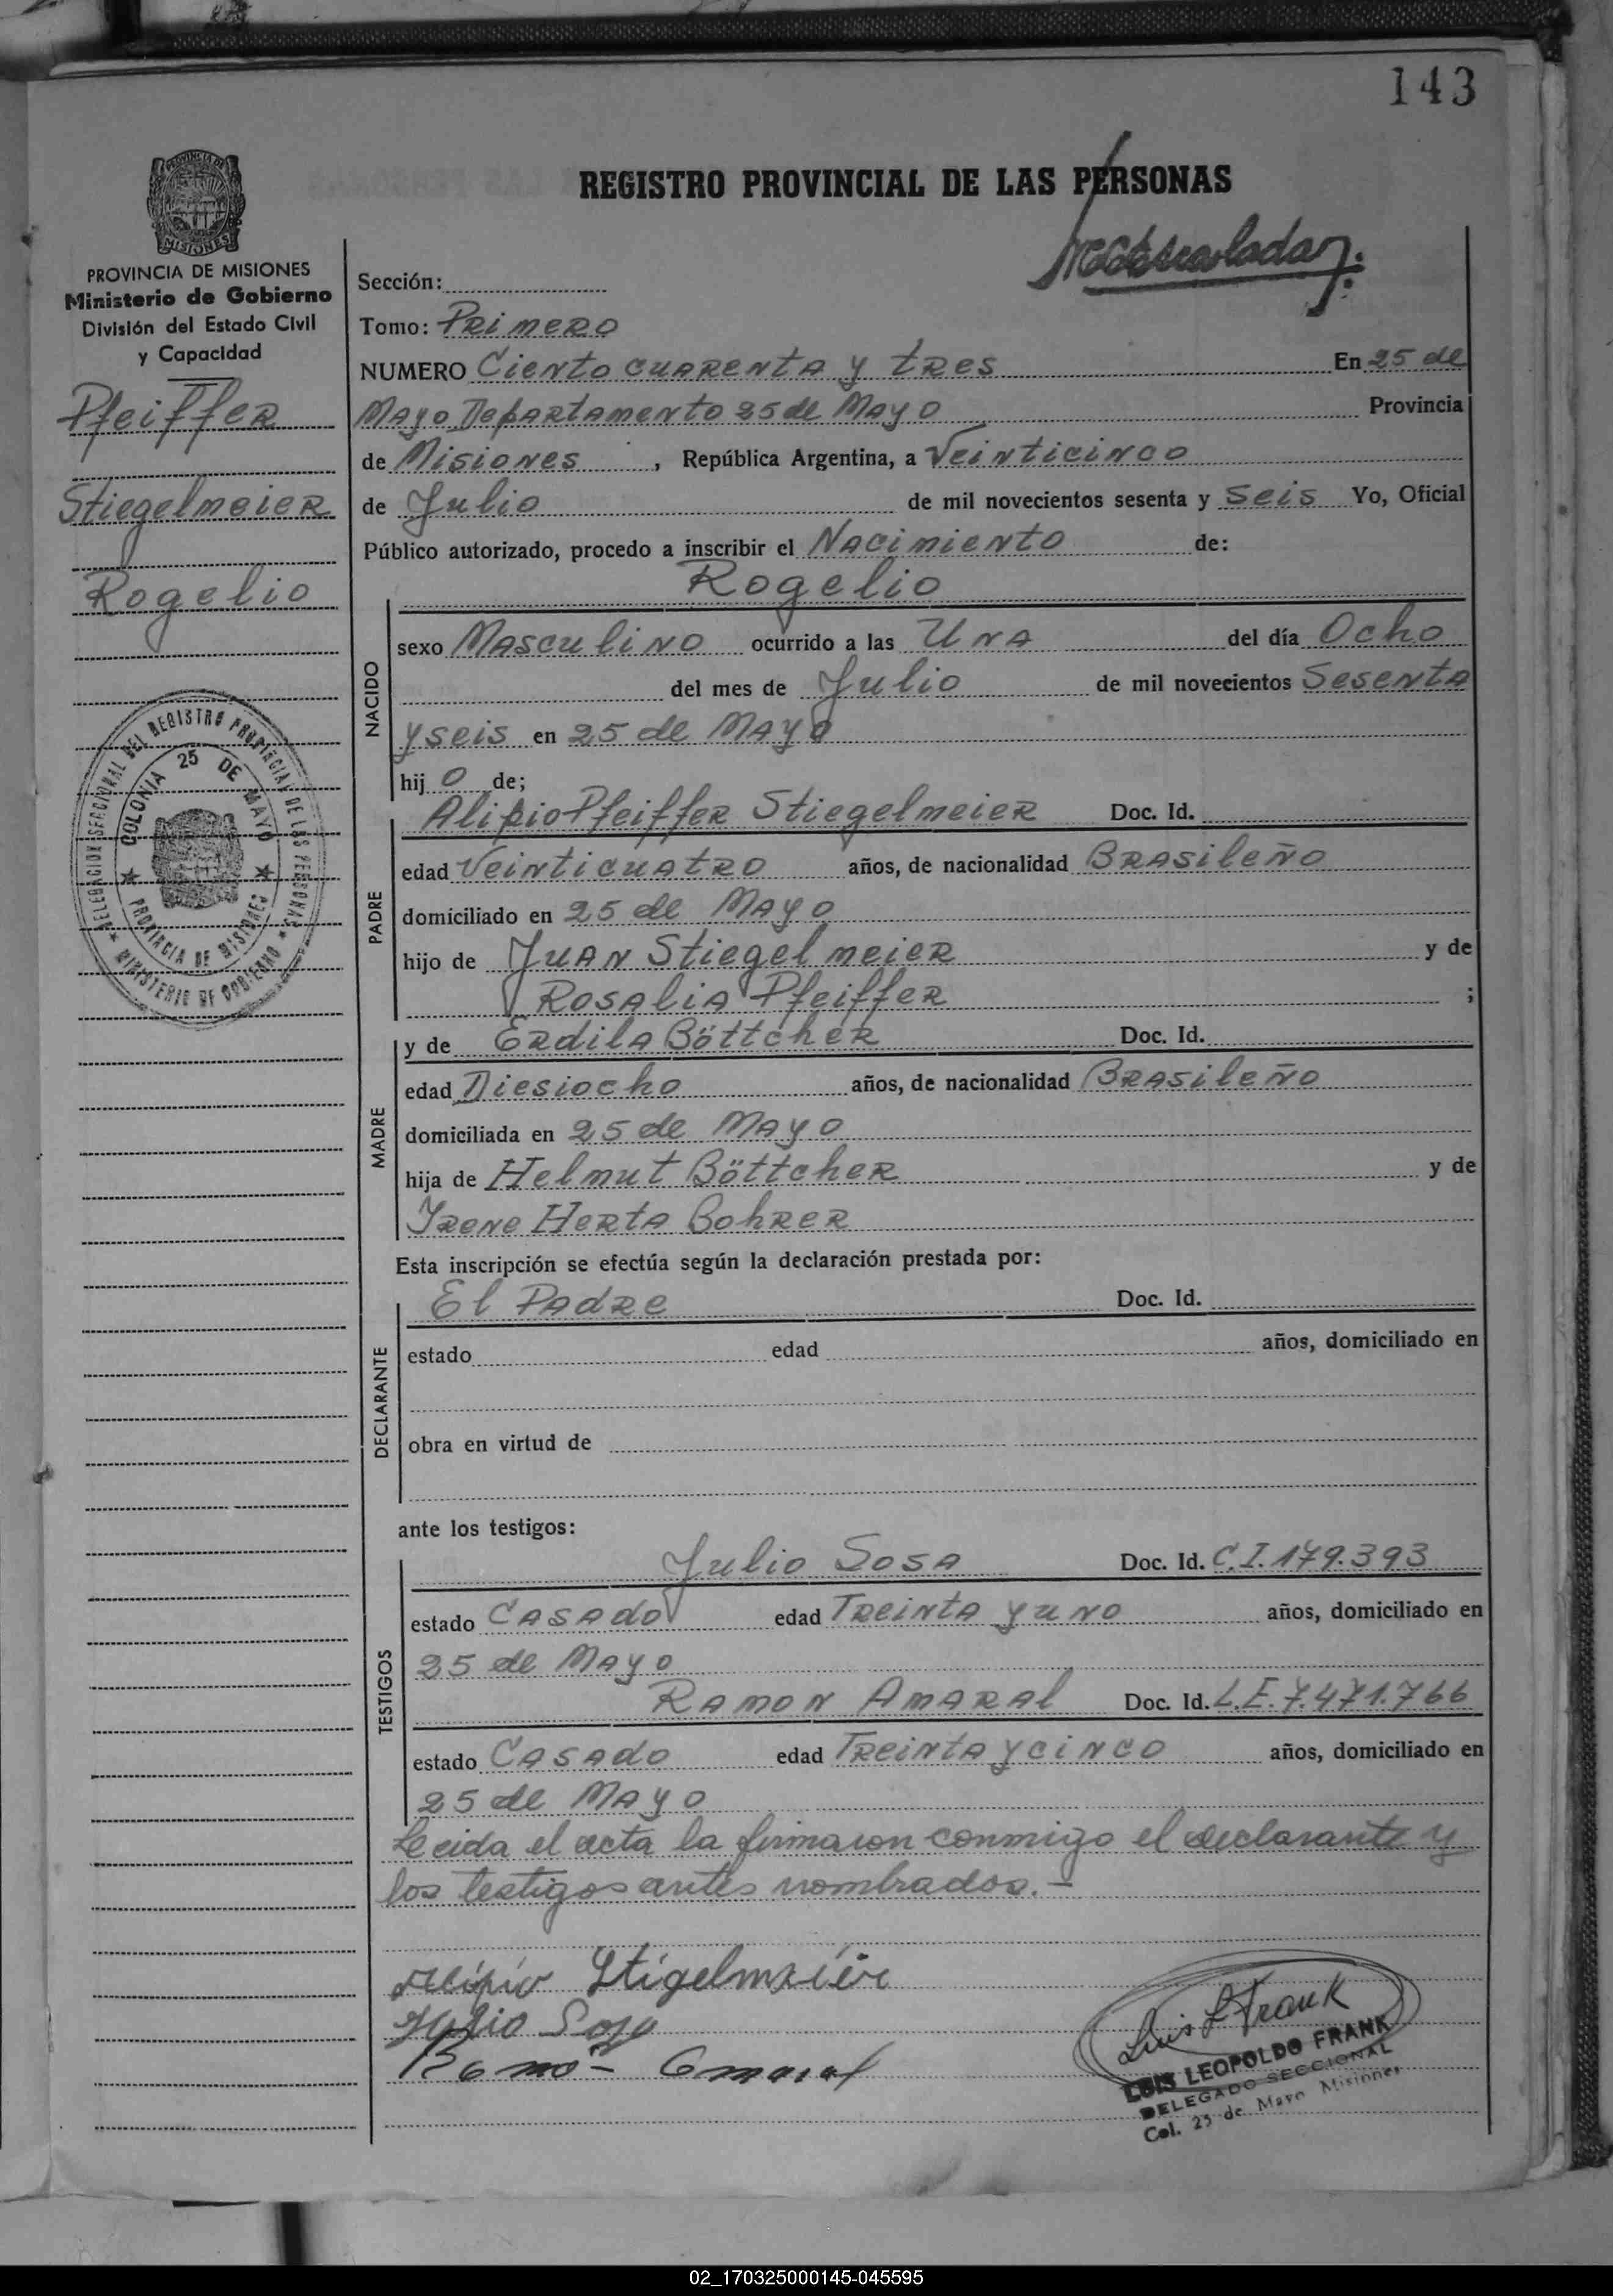 143
REGISTRO PROVINCIAL DE LAS PERSONAS
PROVINCIA DE MISIONES
Ministerio de Gobierno
División del Estado Civil
y Capacidad
Pfeiffer
Stiegelmeier
Rogelio
DELEGACION SECCIONAL DEL REGISTRO PROVINCIAL DE LAS PERSONAS
COLONIA 25 DE MAYO
PROVINCIA DE MISIONES
MINISTERIO DE GOBIERNO
Sección:
Tomo: Primero
NUMERO Ciento cuarenta y tres En 25 de
Mayo Departamento 25 de Mayo Provincia
de Misiones, República Argentina, a Veinticinco
de Julio de mil novecientos sesenta y Seis Yo, Oficial
Público autorizado, procedo a inscribir el Nacimiento de:
Rogelio
NACIDO
sexo Masculino ocurrido a las Una del día Ocho
del mes de Julio de mil novecientos Sesenta
y seis en 25 de Mayo
hij o de;
Alipio Pfeiffer Stiegelmeier Doc. Id.
PADRE
edad Veinticuatro años, de nacionalidad Brasileño
domiciliado en 25 de Mayo
hijo de Juan Stiegelmeier y de
Rosalia Pfeiffer ;
y de Erdila Böttcher Doc. Id.
MADRE
edad Diesiocho años, de nacionalidad Brasileño
domiciliada en 25 de Mayo
hija de Helmut Böttcher y de
Irene Herta Bohrer
Esta inscripción se efectúa según la declaración prestada por:
El Padre Doc. Id.
DECLARANTE
estado edad años, domiciliado en
obra en virtud de
ante los testigos:
Julio Sosa Doc. Id. C.I. 179.393
TESTIGOS
estado Casado edad Treinta y uno años, domiciliado en
25 de Mayo
Ramon Amaral Doc. Id. L.E. 7.471.766
estado Casado edad Treinta y cinco años, domiciliado en
25 de Mayo
Leida el acta la firmaron conmigo el declarante y
los testigos antes nombrados.-
Alipio Stigelmaier
Julio Sosa
Luis L Frank
LUIS LEOPOLDO FRANK
DELEGADO SECCIONAL
Col. 25 de Mayo Misiones
02_170325000145-045595